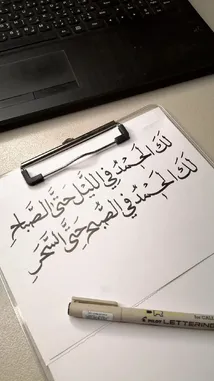 لَكَ الْحَمْدُ فِي اللَّيْلِ حَتَّى الصَّبَاحِ
لَكَ الْحَمْدُ فِي الصُّبْحِ حَتَّى السَّحَرِ
LETTERING